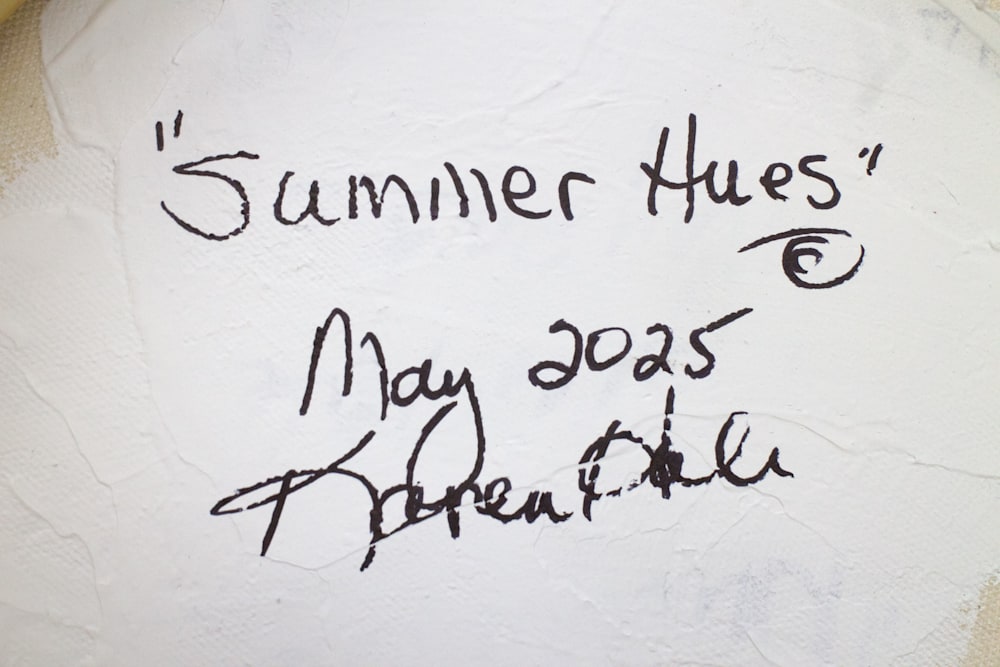 "Summer Hues"
©
May 2025
Karen